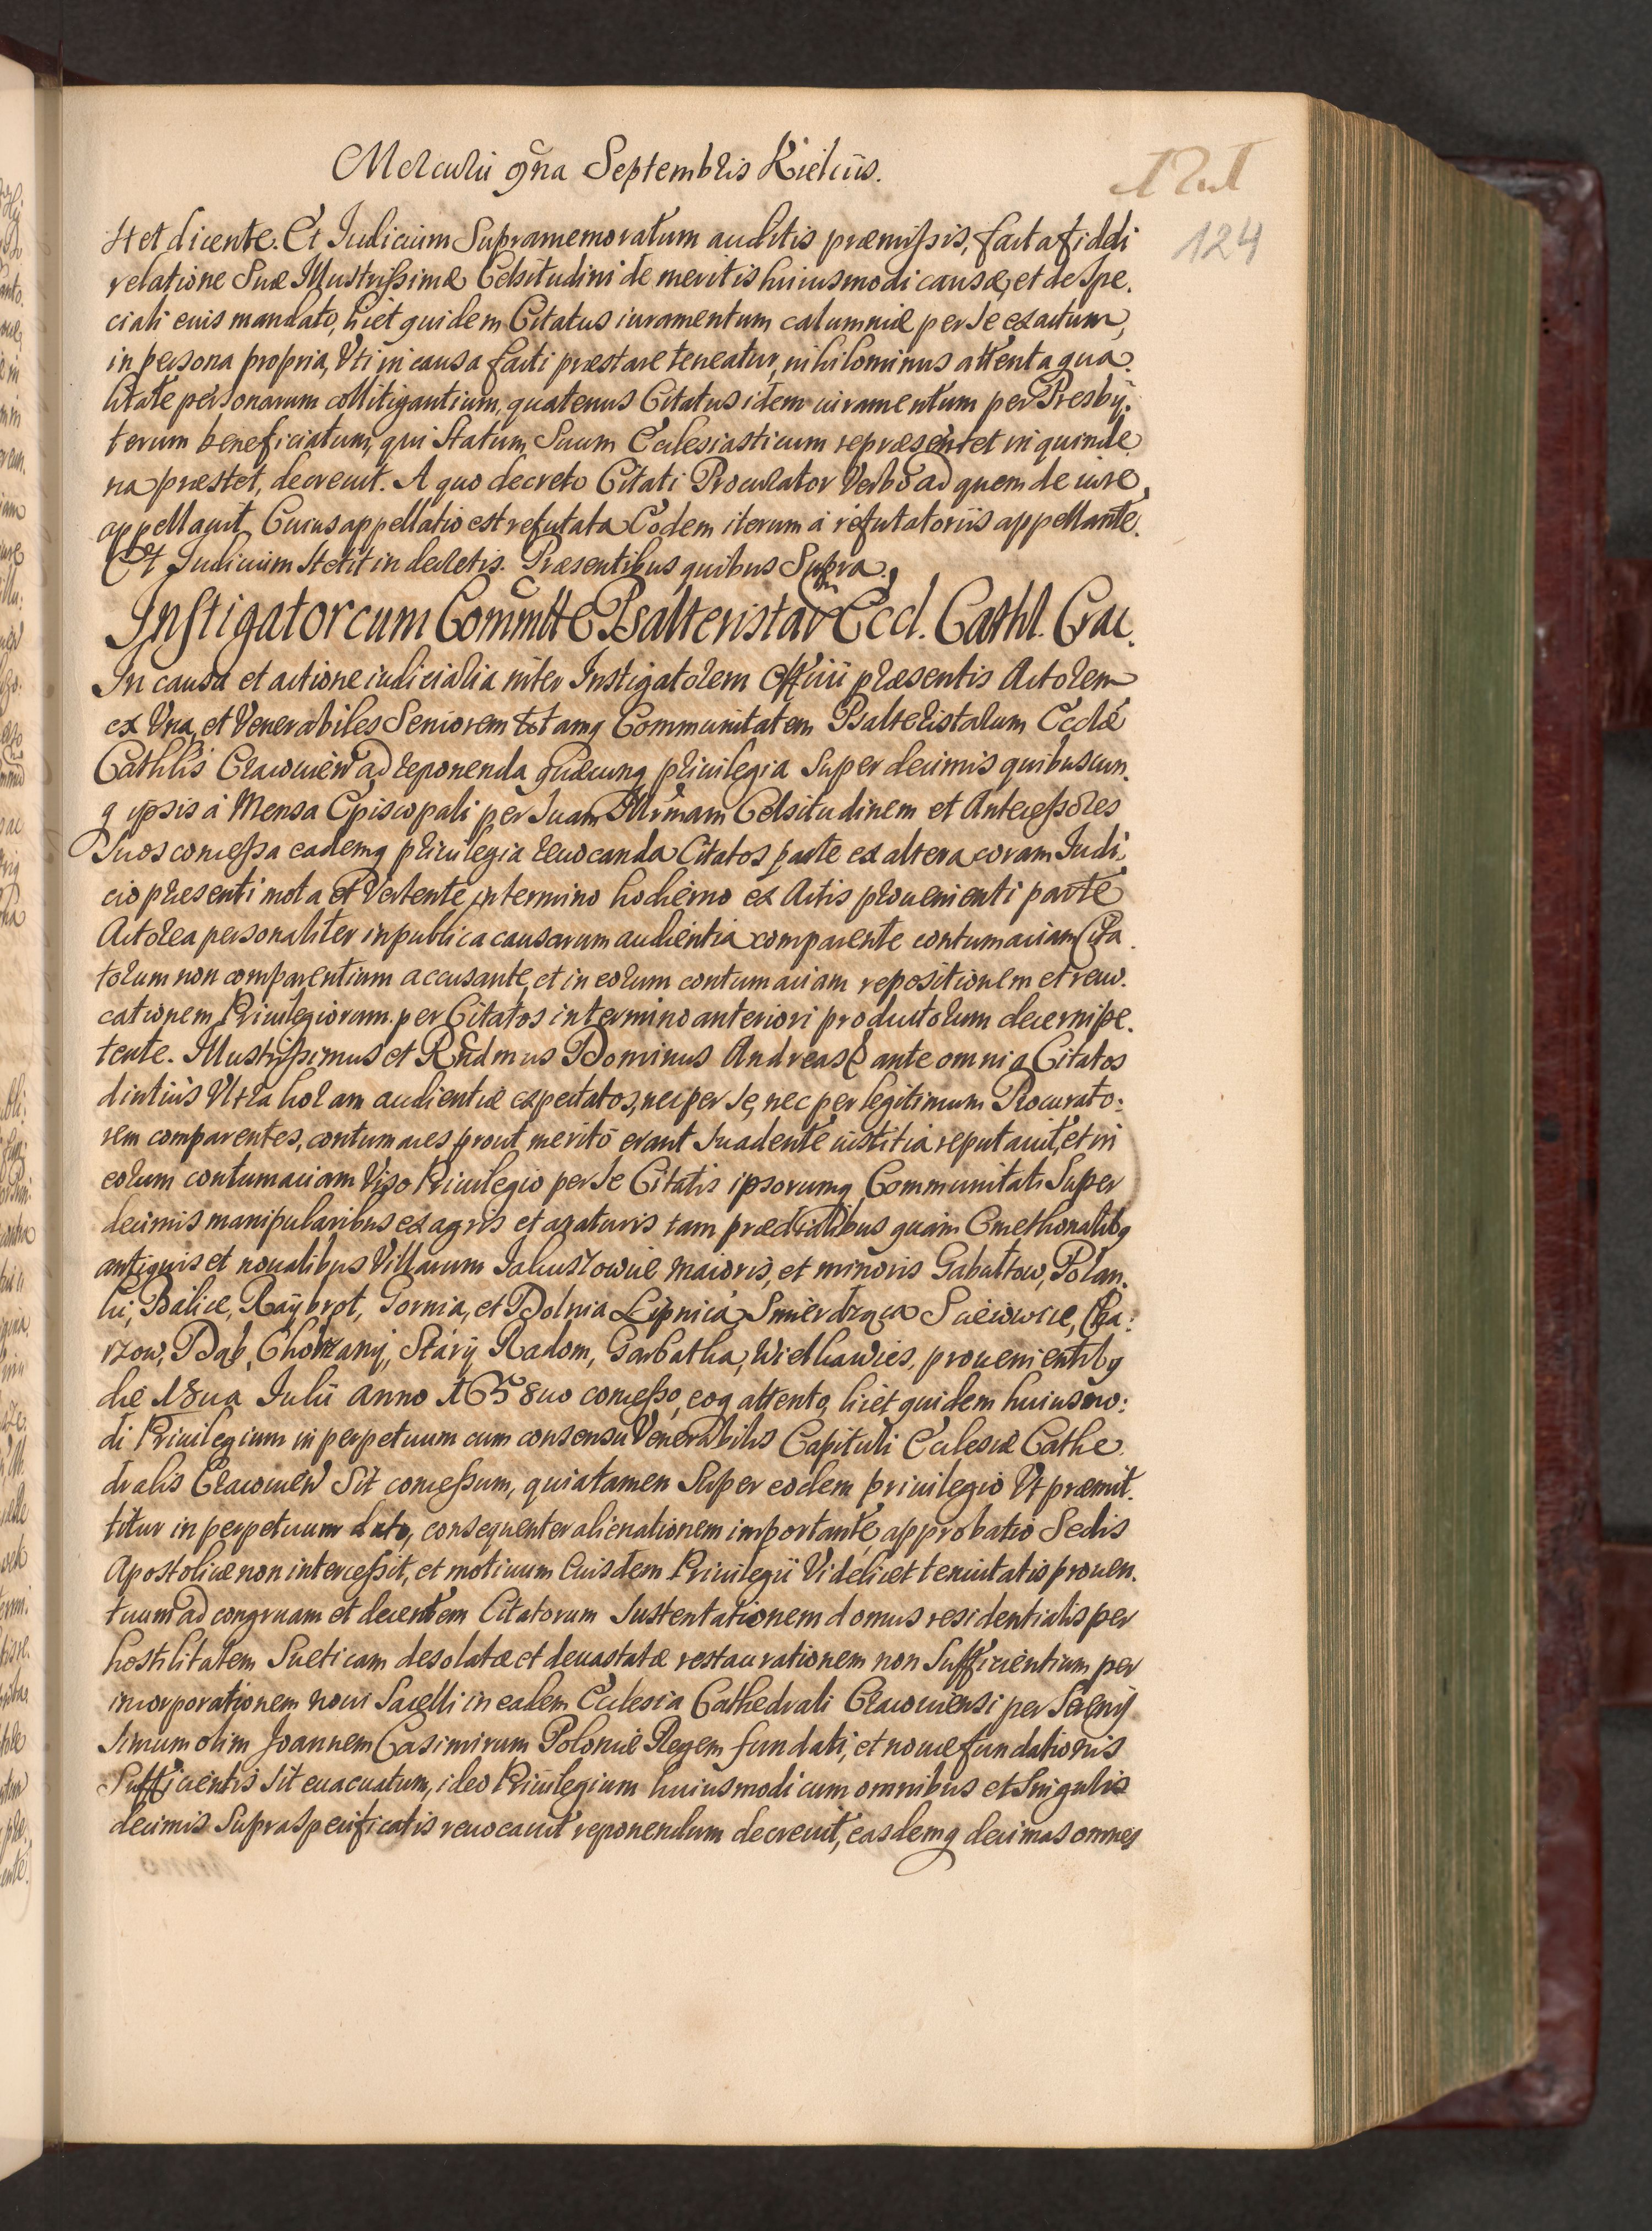 Mercurii 9na Septembris Kielciis.
121
124
Stet dicente. Et Iudicium Supramemoratum auditis præmissis, facta fideli
relatione Suæ Illustrissimæ Celsitudini de meritis huiusmodi causæ, et de Spe.
ciali eius mandato, licet quidem Citatus iuramentum calumniæ per Se exactum,
in persona propria, Vti in causa facti præstare teneatur, nihilominus attenta qua.
litate personarum collitigantium, quatenus Citatus idem iuramentum per Presby.
terum beneficiatum, qui Statum Suum Ecclesiasticum repræsentet in quinde
na præstet, decreuit. A quo decreto Citati Procurator Verbo ad quem de iure
appellauit, Cuius appellatio est refutata Eodem iterum à refutatoriis appellante.
Et Iudicium Stetit in decretis. Præsentibus quibus Supra.
Instigator cum Commtte Psalteristar Eccl. Cathl. Crac.
In causa et actione iudicialia inter Instigatorem Officii præsentis Actorem
ex Vna, et Venerabiles Seniorem totamq Communitatem Psalteristarum Ecclæ
Cathlis Cracouien ad reponenda quæcunq priuilegia Super decimis quibuscun.
q ipsis à Mensa Episcopali per Suam Illrmam Celsitudinem et Antecessores
Suos concessa eademq priuilegia reuocanda Citatos parte ex altera coram Iudi.
cio præsenti mota et Vertente, in termino hodierno ex Actis proueniendi parte
Actorea personaliter in publica causarum audientia comparente contumaciam Cita
torum non comparentium accusante, et in eorum contumaciam repositionem et reuo.
cationem Priuilegiorum per Citatos in termino anteriori productorum decerni pe.
tente. Illustrissimus et Rndmus Dominus Andreas & ante omnia Citatos
diutius Vltra horam audientiæ expectatos, nec per Se, nec per legitimum Procurato:
rem comparentes, contumaces prout meritò erant Suadente iustitia reputauit, et in
eorum contumaciam Viso Priuilegio per Se Citatis ipsorumq Communitati Super
decimis manipularibus ex agris et araturis tam prædialibus quàm Cmethonalibq
antiquis et noualibus Villarum Iakuszowice maioris, et minoris Gabułtow, Polan.
ki, Balice, Raÿbrot, Gornia, et Dolnia Lipnica Smierdzqca Sciéiowice, Cha:
rzow, Dąb, Chorzany, Stárÿ Radom, Garbatka, Wielkawies, prouenientibq
die 18ua Iulii anno 1658uo concesso, eoq attento, licet quidem huiusmo:
di Priuilegium in perpetuum cum consensu Venerabilis Capituli Ecclesiæ Cathe
dralis Cracouien Sit concessum, quia tamen Super eodem priuilegio Vt præmit.
titur in perpetuum dato, consequenter alienationem importante, approbatio Sedis
Apostolicæ non intercessit, et motiuum Eiusdem Priuilegii Videlicet tenuitatis prouen.
tuum ad congruam et decentem Citatorum Sustentationem domus residentialis per
hostilitatem Sueticam desolatæ et deuastatæ restaurationem non Sufficientium per
incorporationem noui Sacelli in eadem Ecclesia Cathedrali Cracouiensi per Sereniss
Simum olim Joannem Casimirum Poloniæ Regem fundati, et nouæ fundationis
Sufficientis Sit euacuatum, ideo Priuilegium huiusmodi cum omnibus et Singulis
decimis Supraspecificatis reuocauit reponendum decreuit, easdemq decimas omnes